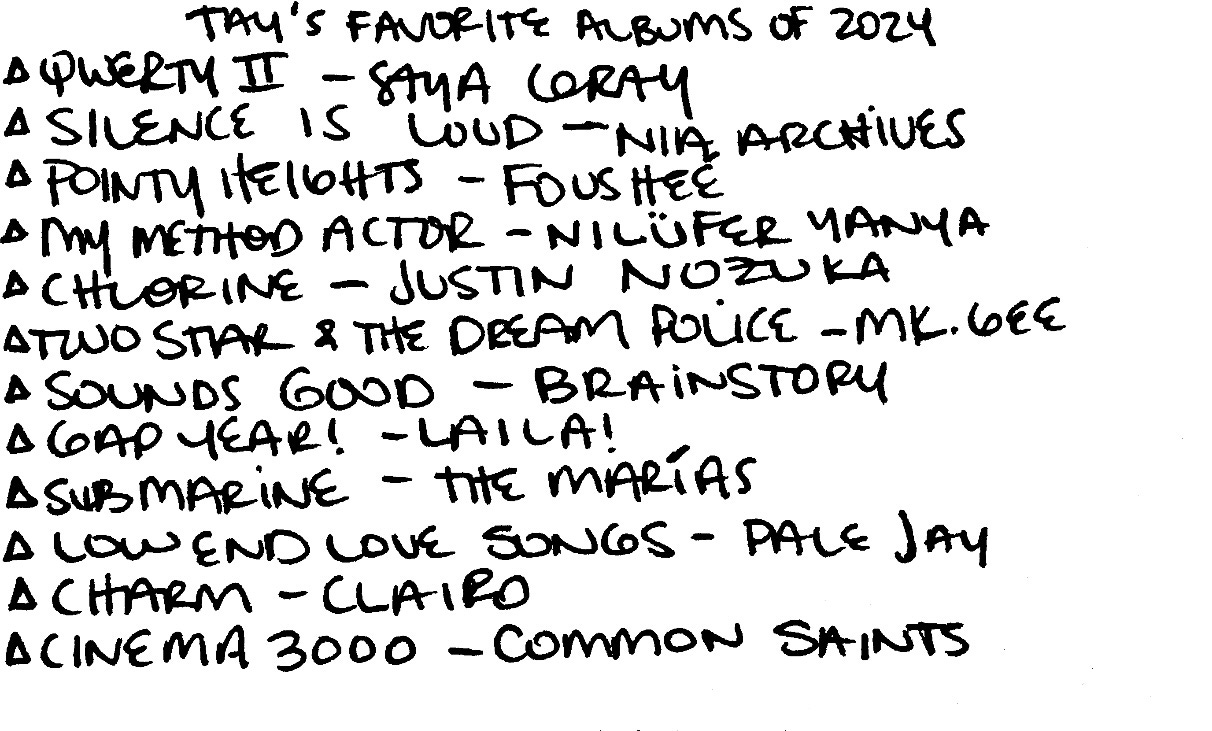 TAY'S FAVORITE ALBUMS OF 2024
∆ QWERTY II - SAYA GRAY
∆ SILENCE IS LOUD - NIA ARCHIVES
∆ POINTY HEIGHTS - FOUSHEÉ
∆ MY METHOD ACTOR - NILÜFER YANYA
∆ CHLORINE - JUSTIN NOZUKA
∆ TWO STAR & THE DREAM POLICE - MK.GEE
∆ SOUNDS GOOD - BRAINSTORY
∆ GAP YEAR! - LAILA!
∆ SUBMARINE - THE MARÍAS
∆ LOW END LOVE SONGS - PALE JAY
∆ CHARM - CLAIRO
∆ CINEMA 3000 - COMMON SAINTS